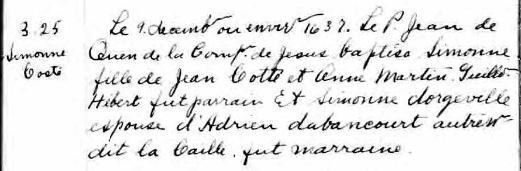 3.25
Simonne
Costé
Le 9. decemb ou envirᵒⁿ 1637. Le P. Jean de
Quen de la Compᵉ de Jesus baptisa Simonne
fille de Jean Cotté et Anne Martin. Guillᵉ
Hébert fut parrain Et Simonne dorgeville
espouse d'Adrien dabancourt autremᵗ
dit la Caille, fut marraine.